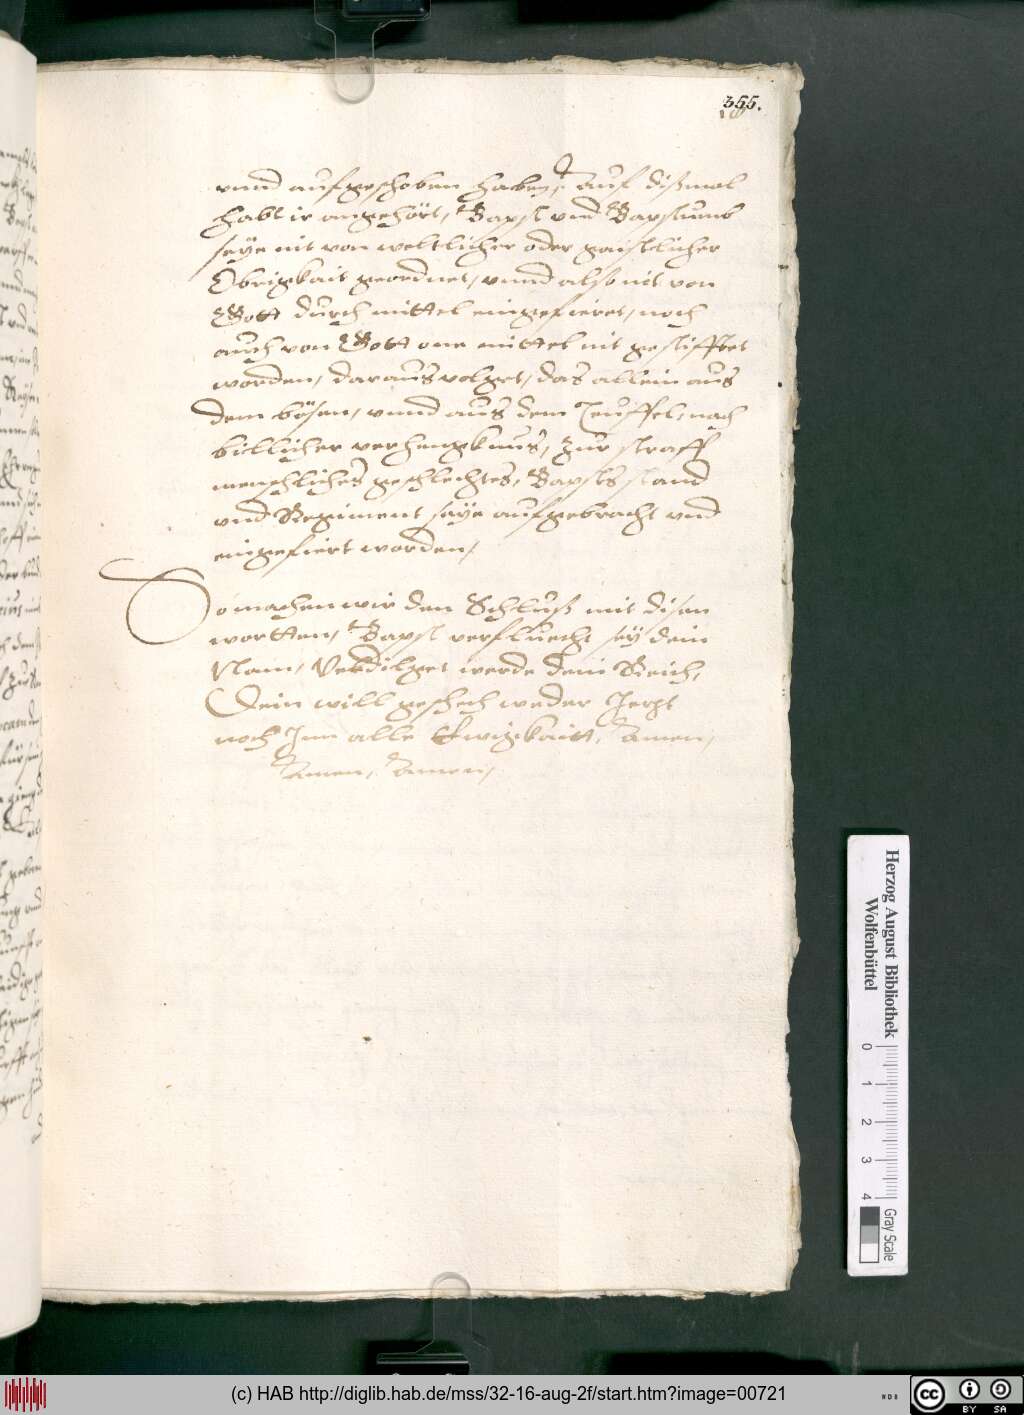 355.
vnnd aufgeschoben haben, Auf dißmal
habt ir angehört, Bapst vnd Bapstumb
seÿe nit von weltlicher oder gaistlicher
Obrigkait geordnet, vnnd also nit von
Gott durch mittel eingefieret, noch
auch von Gott one mittel nit gestifftet
worden, daraus volget, das allein aus
dem bösen, vnnd aus dem Teuffel, nach
billicher verhengknus, zur straff
menschliches geschlechtes, Bapsts stand
vnd Regiment seÿe aufgebracht vnd
eingefiert worden,
So machen wir den Schluß mit disen
wortten, Bapst verfluecht seÿ dein
Nam, Vertilget werde dein Reich,
Dein will geschech weder Jetzt
noch Jnn alle Ewigkaitt, Amen,
Amen, Amen,
Herzog August Bibliothek
Wolfenbüttel
0 1 2 3 4
Gray Scale
(c) HAB http://diglib.hab.de/mss/32-16-aug-2f/start.htm?image=00721
cc BY SA